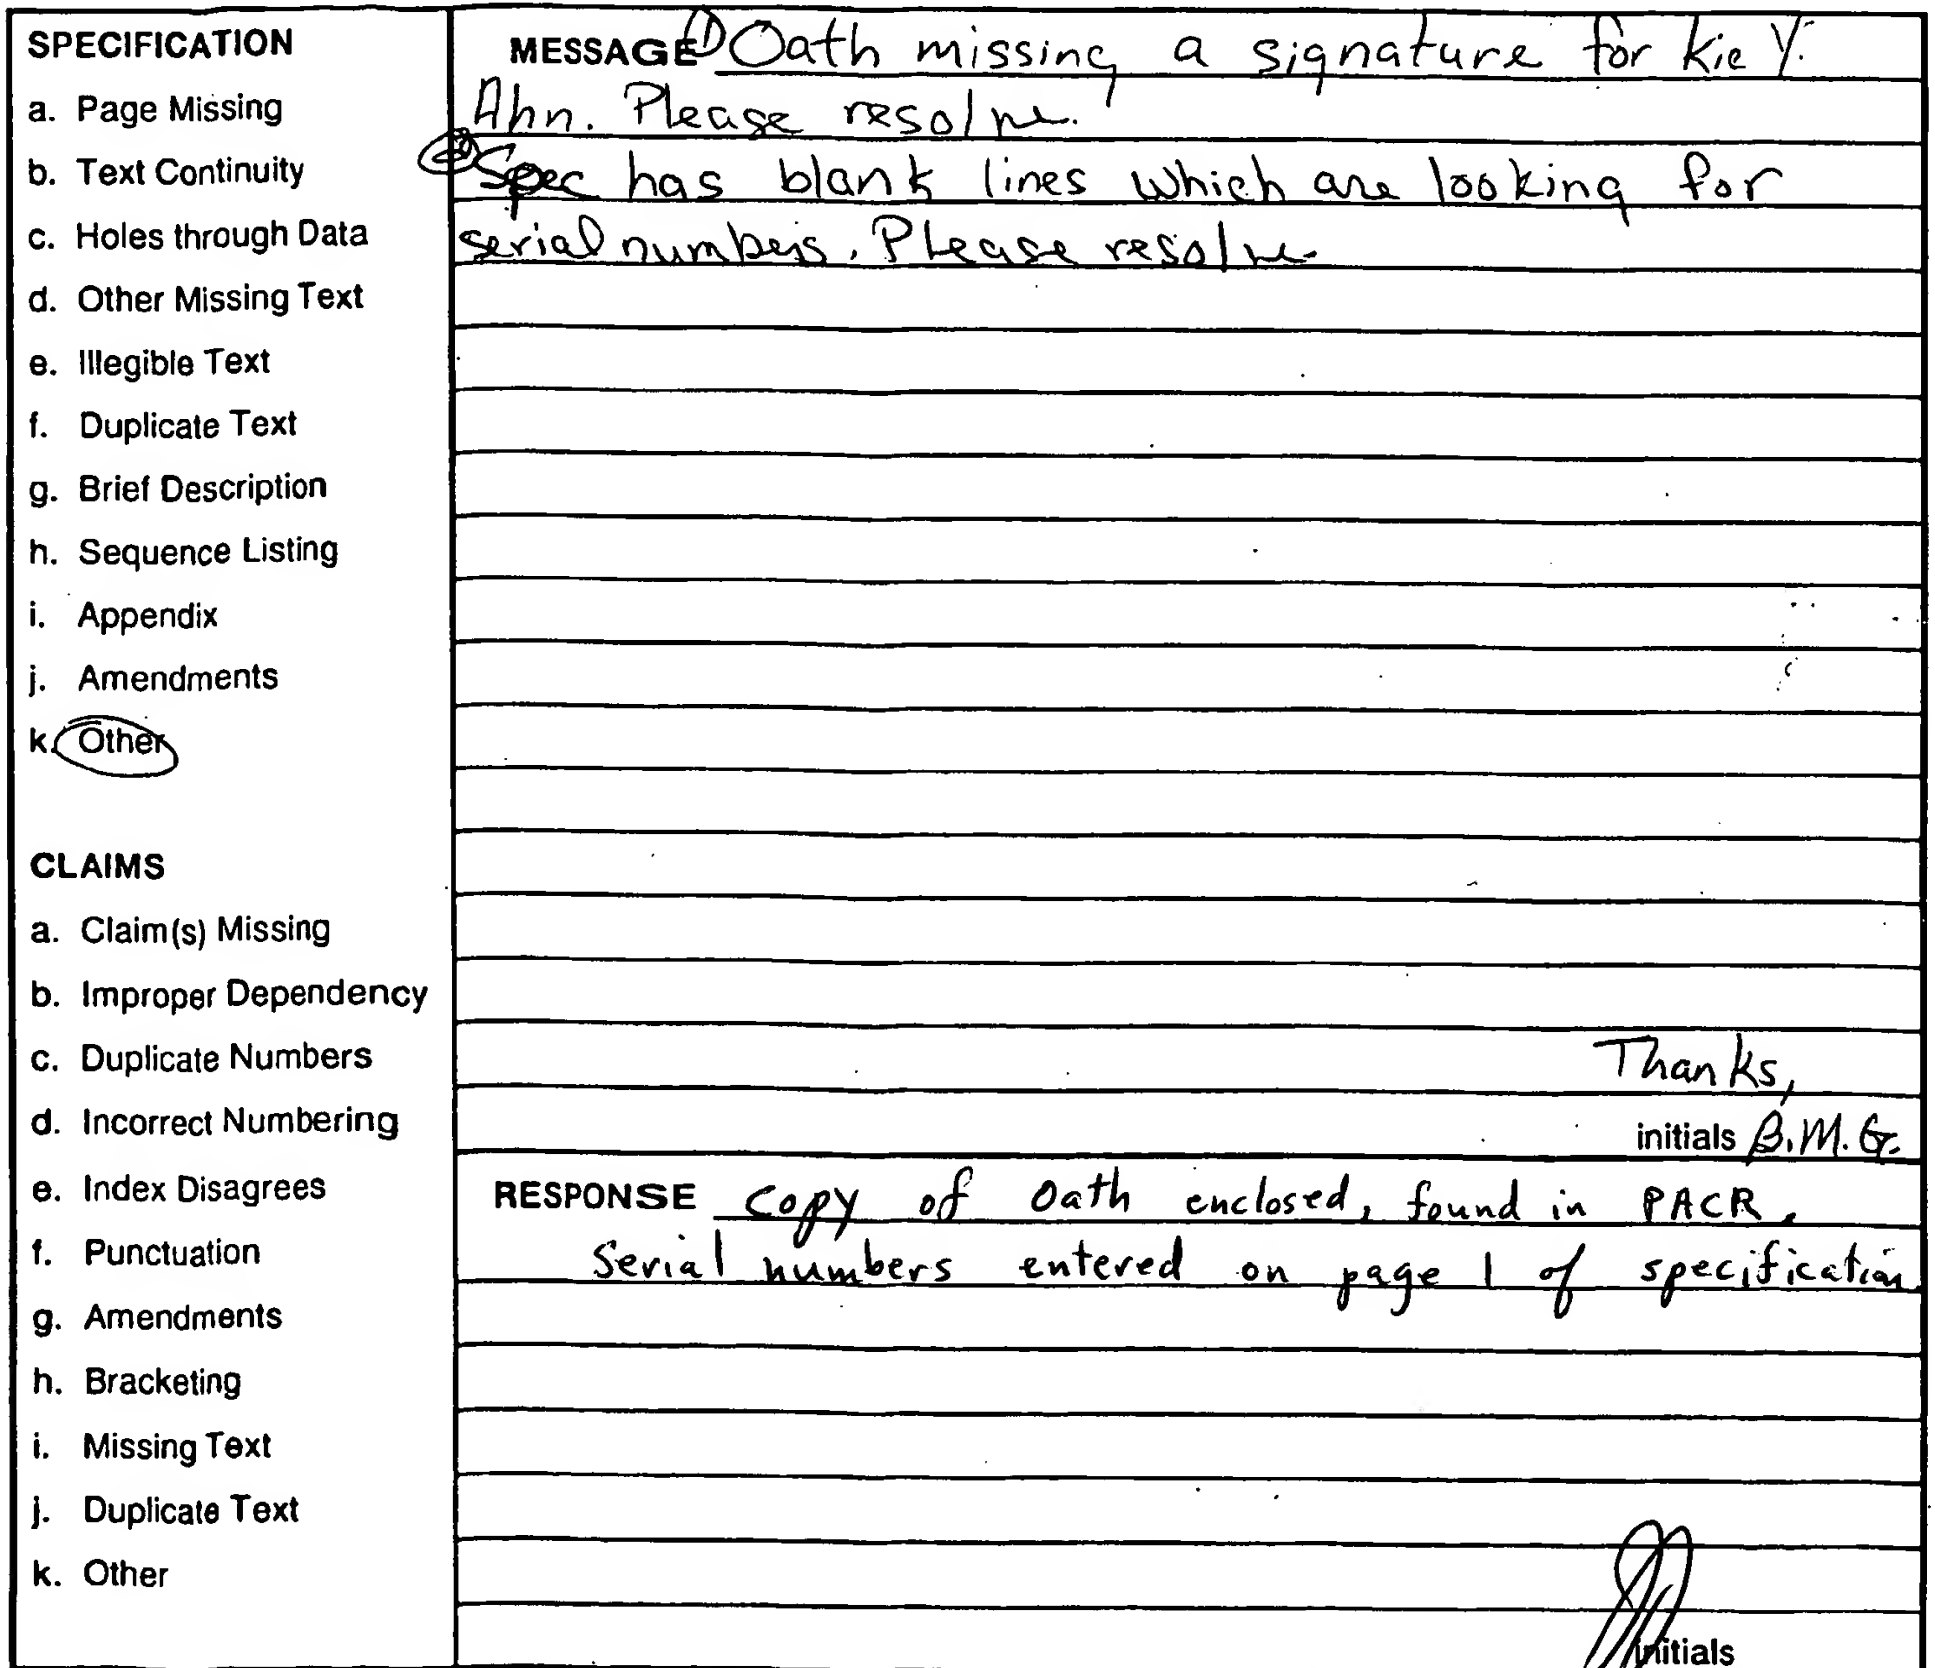 SPECIFICATION
a. Page Missing
b. Text Continuity
c. Holes through Data
d. Other Missing Text
e. Illegible Text
f. Duplicate Text
g. Brief Description
h. Sequence Listing
i. Appendix
j. Amendments
k. Other
CLAIMS
a. Claim(s) Missing
b. Improper Dependency
c. Duplicate Numbers
d. Incorrect Numbering
e. Index Disagrees
f. Punctuation
g. Amendments
h. Bracketing
i. Missing Text
j. Duplicate Text
k. Other
MESSAGE ① Oath missing a signature for Kie Y.
Ahn. Please resolve.
② Spec has blank lines which are looking for
serial numbers. Please resolve.
Thanks,
initials B.M.G.
RESPONSE Copy of Oath enclosed, found in PACR.
Serial numbers entered on page 1 of specification.
initials